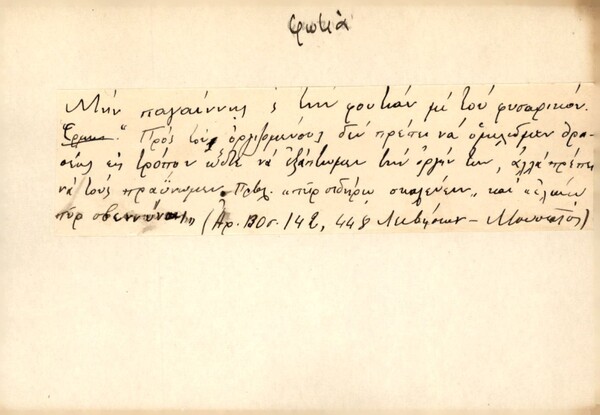 φωτιά
Μήν παγαίννῃς ς τήν φουτιάν μέ τόν φυσαρικόν.
Ἑρμην. "Πρός τούς ὀργιζομένους δέν πρέπει νά ὁμιλῶμεν θρα-
σέως εἰς τρόπον ὥστε νά ἐξάπτωμεν τήν ὀργήν των, ἀλλά πρέπει
νά τούς πραΰνωμεν. Πρβλ. "πῦρ σιδήρῳ σκαλεύειν" καί "ἐλαίῳ
πῦρ σβεννύναι" (Ἀρ. 130 σ. 142, 448 Λιβήσιον - Μουσαῖος)